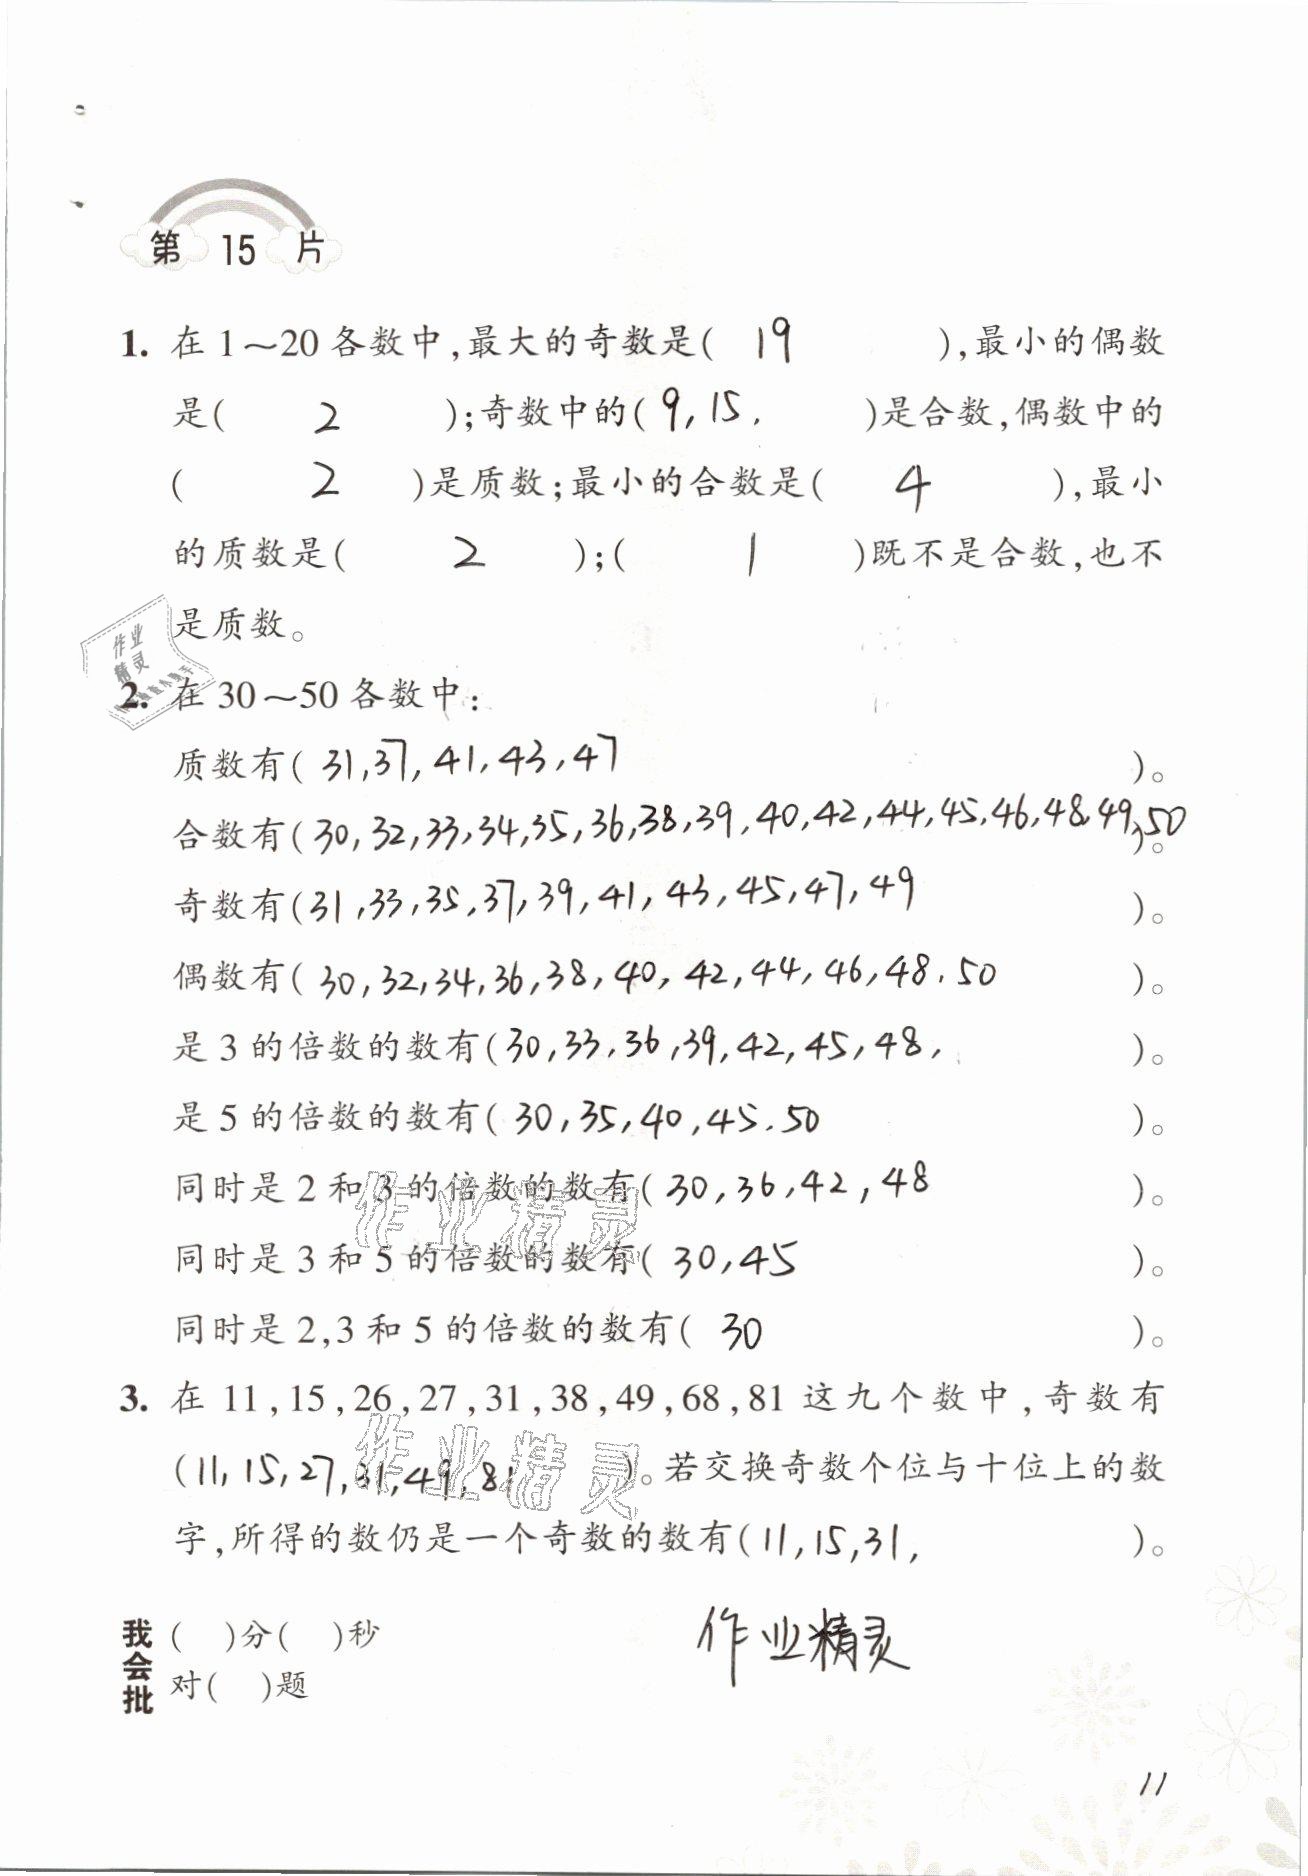 第 15 片
1. 在1～20各数中,最大的奇数是( 19 ),最小的偶数
是( 2 );奇数中的( 9,15. )是合数,偶数中的
( 2 )是质数;最小的合数是( 4 ),最小
的质数是( 2 );( 1 )既不是合数,也不
是质数。
作业
精灵
2. 在30～50各数中:
质数有( 31,37,41,43,47 )。
合数有( 30,32,33,34,35,36,38,39,40,42,44,45,46,48,49,50 )。
奇数有( 31,33,35,37,39,41,43,45,47,49 )。
偶数有( 30,32,34,36,38,40,42,44,46,48.50 )。
是3的倍数的数有( 30,33,36,39,42,45,48, )。
是5的倍数的数有( 30,35,40,45.50 )。
同时是2和3的倍数的数有( 30,36,42,48 )。
作业精灵
同时是3和5的倍数的数有( 30,45 )。
同时是2,3和5的倍数的数有( 30 )。
3. 在11,15,26,27,31,38,49,68,81这九个数中,奇数有
作业精灵
( 11,15,27,31,49,81 )。若交换奇数个位与十位上的数
字,所得的数仍是一个奇数的数有( 11,15,31, )。
我会批
( )分( )秒
对( )题
作业精灵
11